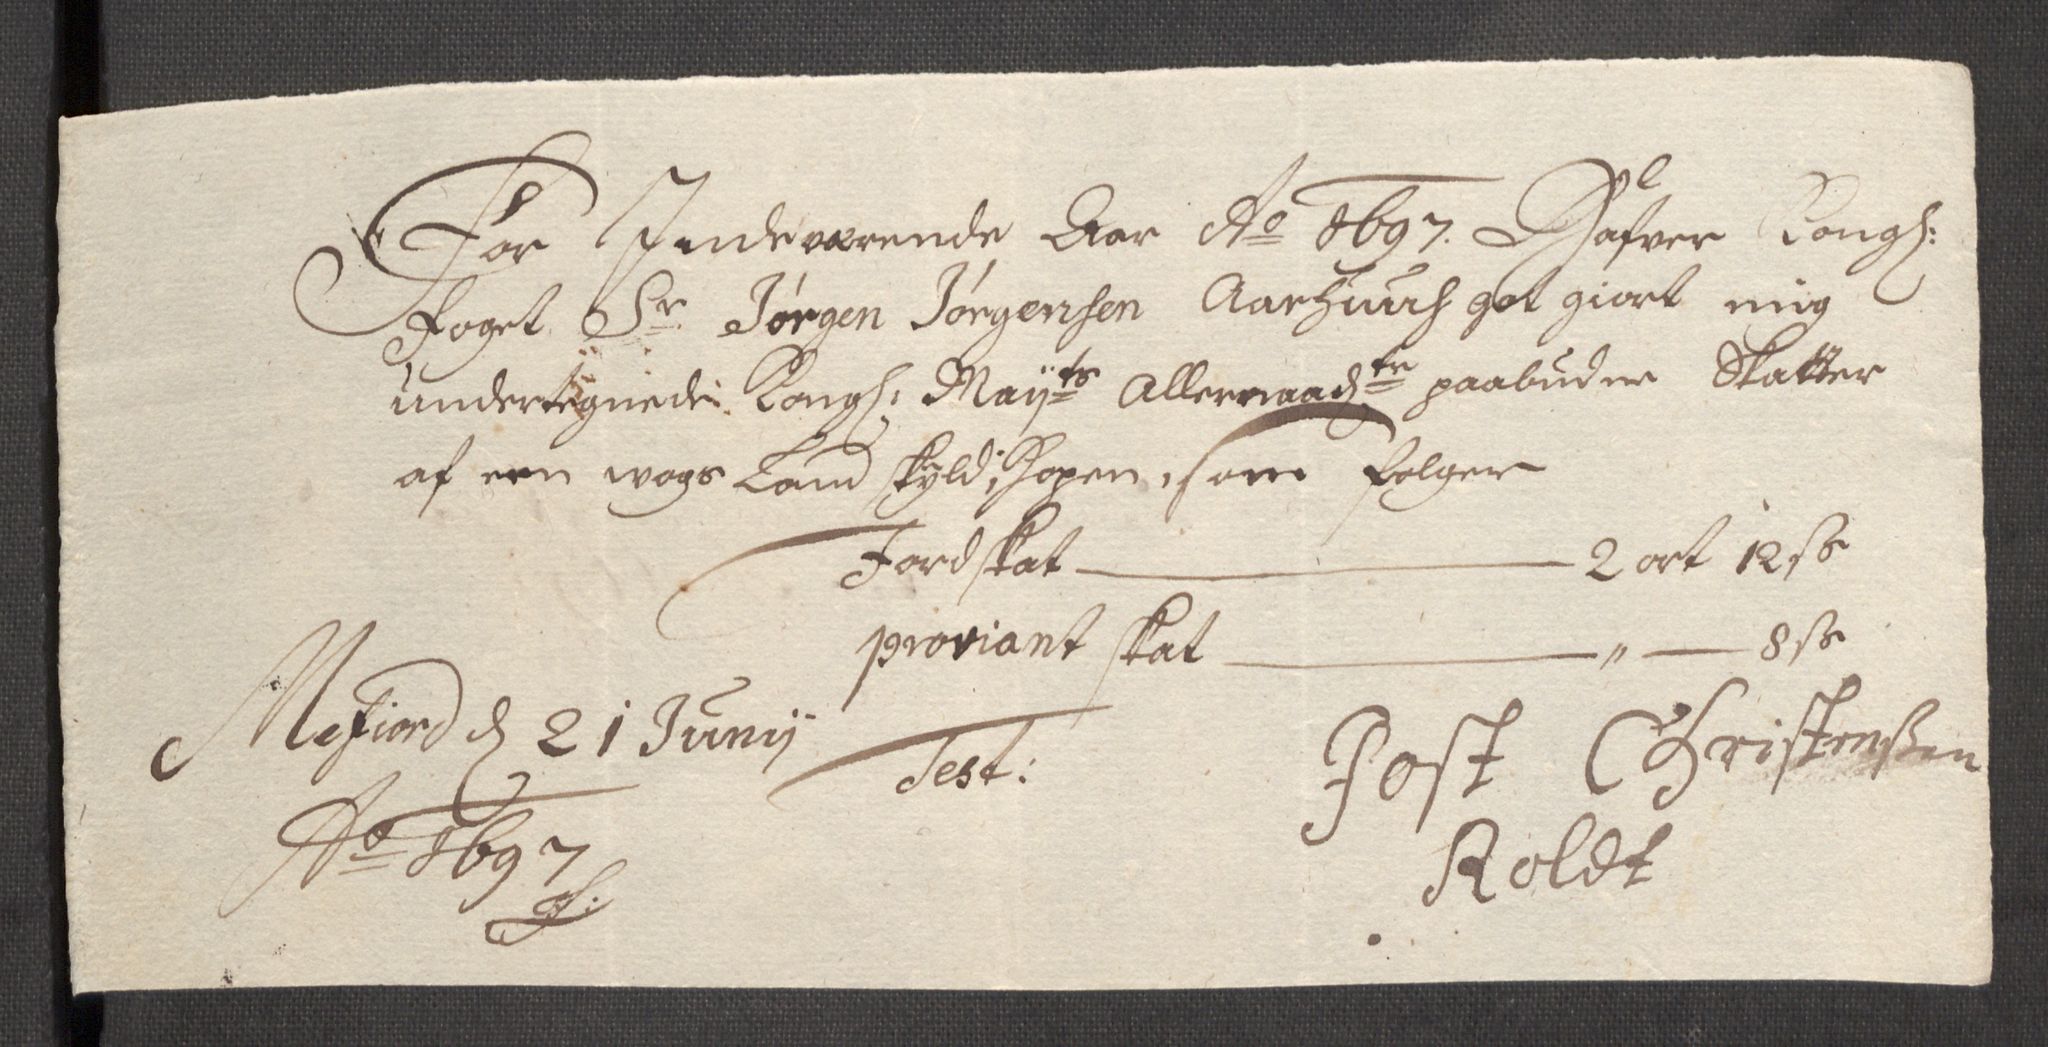 For Indeværende Aar Ao 1697. Hafver Kongl:
Foget Sr Jørgen Jørgensen Aarhuus got giort mig
undertegnede Kongl: Mayts Allernaadte paabudne Skatter
af een wogs Land skyld, Hopen, som følger
Jordskat — 2 ort 12 s
proviant skat — " — 8 s
Mefiord d 21 Junij
Ao 1697
Test:
Post Christenssen
Roldt